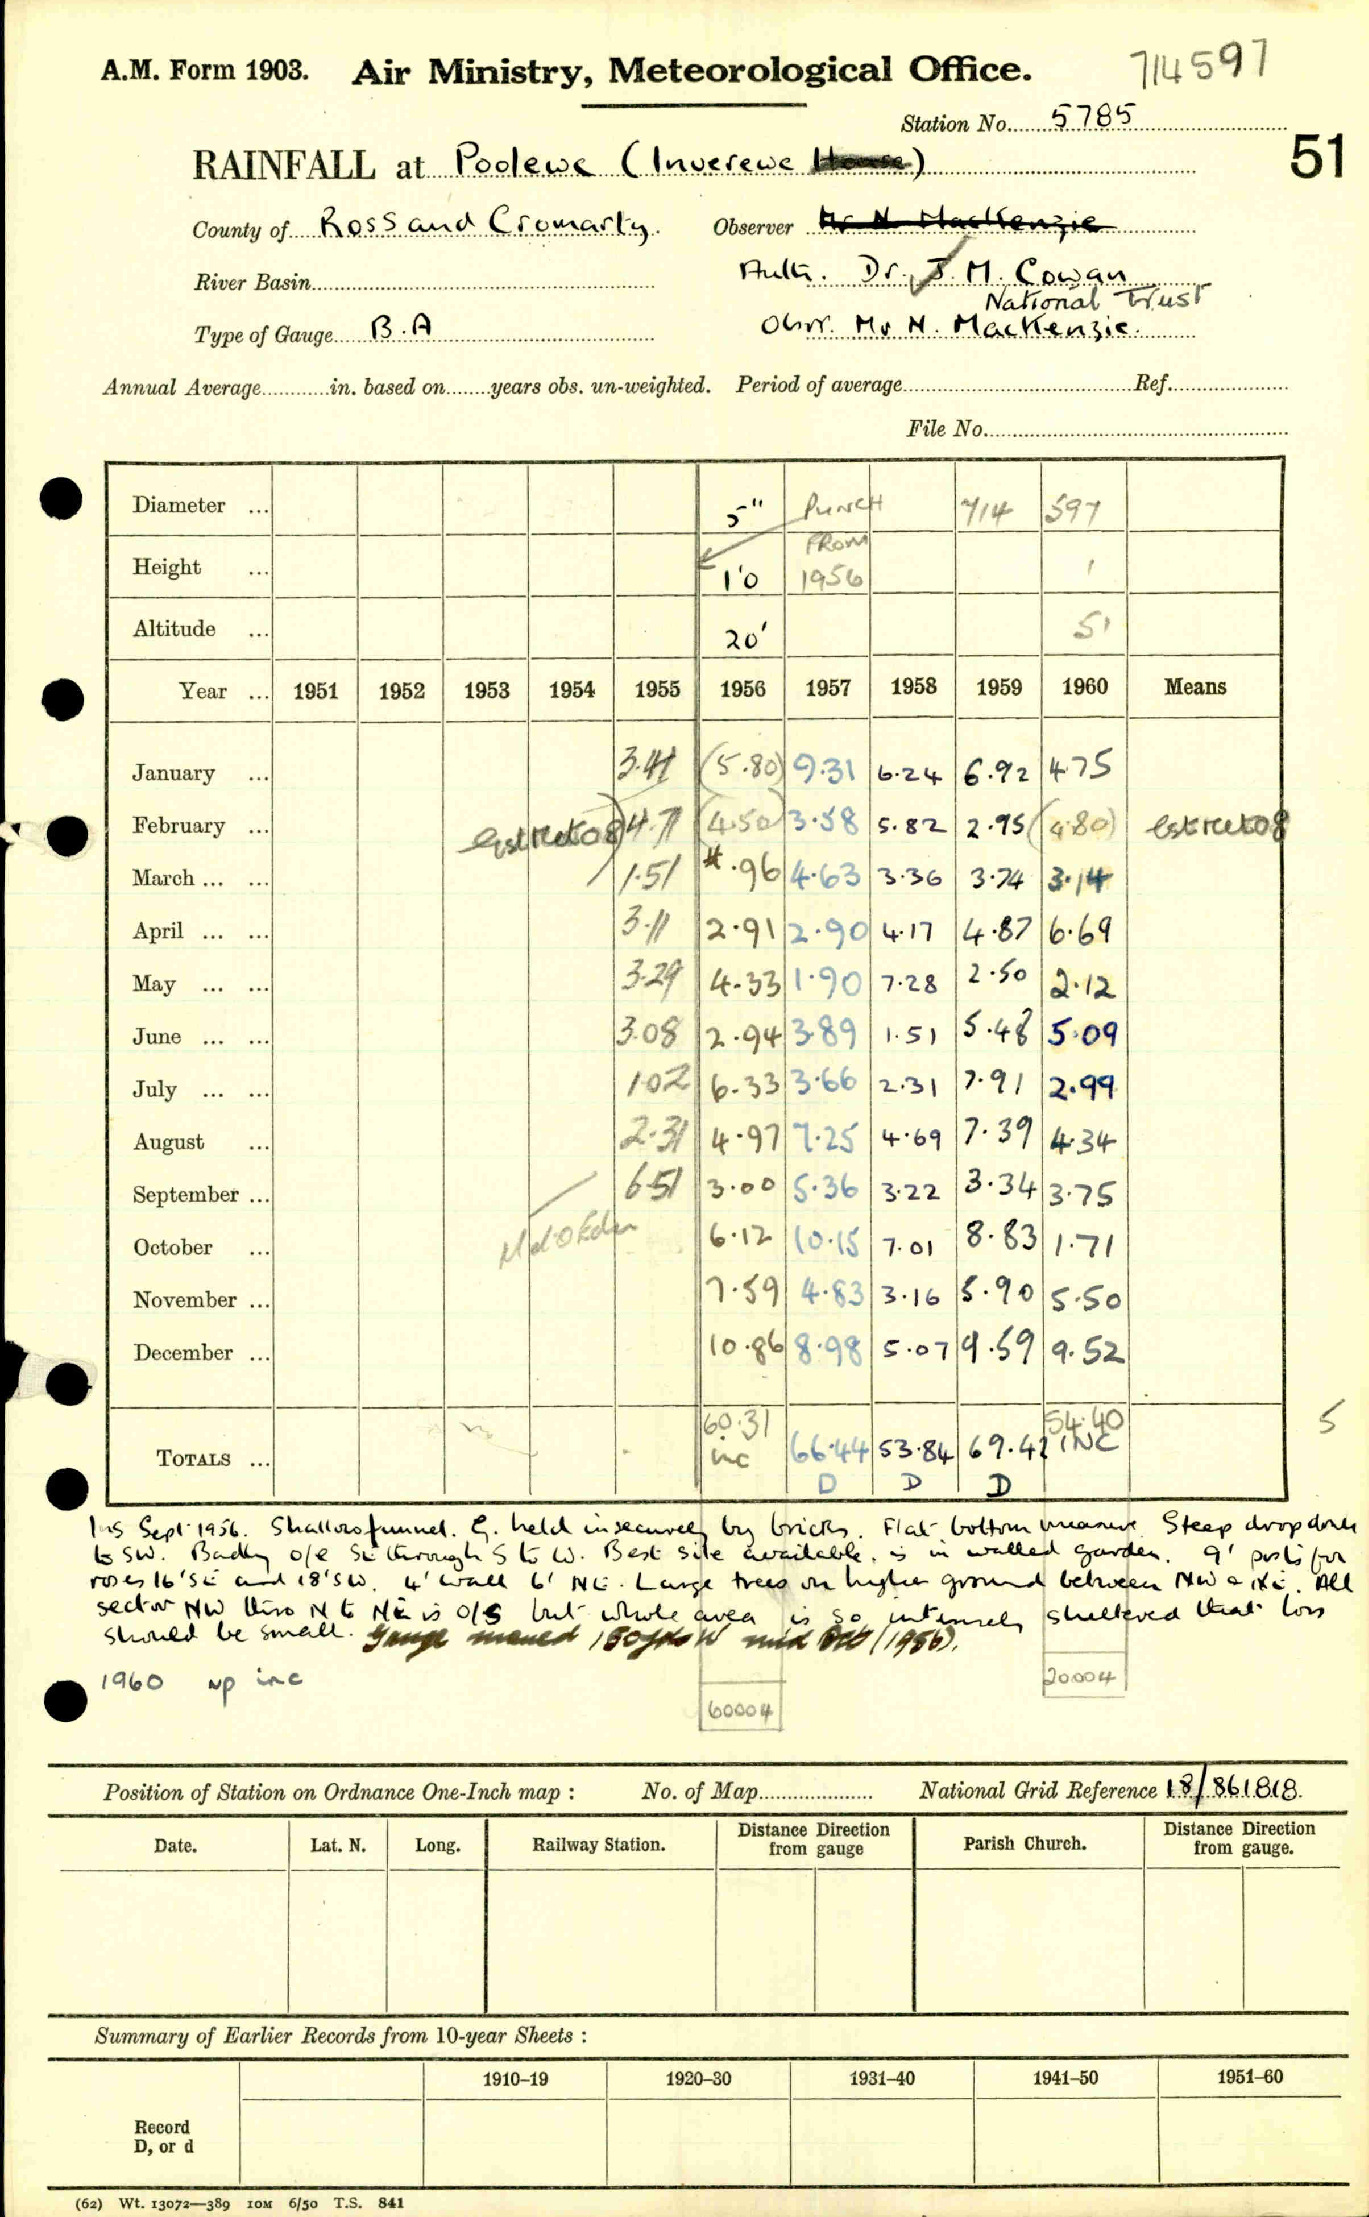 A.M. Form 1903. Air Ministry, Meteorological Office. 714597
Station No. 5785
51
RAINFALL at Poolewe (Inverewe House)
County of Ross and Cromarty Observer Mr N. MacKenzie
River Basin Auth. Dr. J. M. Cowan
National Trust
Type of Gauge B.A Obsr. Mr N. MacKenzie.
Annual Average in. based on years obs. un-weighted. Period of average Ref.
File No.
Diameter ... 5" PUNCH 714 597
Height ... 1'0 FROM 1956 1
Altitude ... 20' 51
Year ... 1951 1952 1953 1954 1955 1956 1957 1958 1959 1960 Means
January ... 3.41 (5.80) 9.31 6.24 6.92 4.75
February ... 4.71 (4.50) 3.58 5.82 2.95 (4.80)
March ... ... 1.51 .96 4.63 3.36 3.74 3.14
April ... ... 3.11 2.91 2.90 4.17 4.87 6.69
May ... ... 3.29 4.33 1.90 7.28 2.50 2.12
June ... ... 3.08 2.94 3.89 1.51 5.48 5.09
July ... ... 1.02 6.33 3.66 2.31 7.91 2.99
August ... 2.31 4.97 7.25 4.69 7.39 4.34
September ... 6.51 3.00 5.36 3.22 3.34 3.75
October ... 6.12 10.15 7.01 8.83 1.71
November ... 7.59 4.83 3.16 5.90 5.50
December ... 10.86 8.98 5.07 9.59 9.52
60.31 54.40 5
TOTALS ... inc 66.44 53.84 69.42 INC
D D D
Ins Sept 1956. Shallow funnel. G. held insecurely by bricks. Flat bottom measure. Steep drop down
to SW. Badly o/e SE through S to W. Best site available. is in walled garden. 9' posts for
roses 16'SE and 18'SW. 4' wall 6' NE. Large trees on higher ground between NW & NE. All
sector NW thro N to NE is o/s but whole area is so intensely sheltered that loss
should be small. Gauge moved 150yds W mid (1956).
1960 np inc 20004
60004
Position of Station on Ordnance One-Inch map : No. of Map National Grid Reference 18/861818
Date. Lat. N. Long. Railway Station. Distance Direction from gauge Parish Church. Distance Direction from gauge.
Summary of Earlier Records from 10-year Sheets :
1910–19 1920–30 1931–40 1941–50 1951–60
Record
D, or d
(62) Wt. 13072—389 10M 6/50 T.S. 841